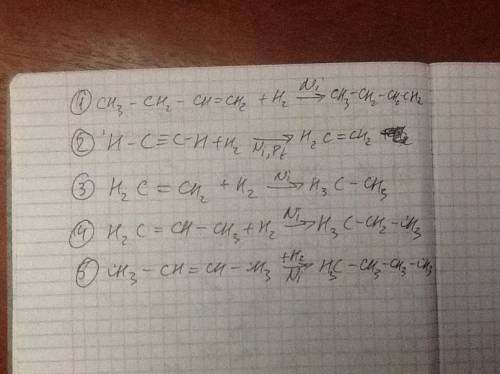 ① CH₃ – CH₂ – CH=CH₂ + H₂ —Ni→ CH₃–CH₂–CH₂–CH₂
② H–C≡C–H + H₂ —Ni, Pt→ H₂C=CH₂
③ H₂C = CH₂ + H₂ —Ni→ H₃C – CH₃
④ H₂C = CH – CH₃ + H₂ —Ni→ H₃C – CH₂ – CH₃
⑤ CH₃ – CH = CH – CH₃ —+H₂, Ni→ H₃C – CH₂ – CH₂ – CH₃